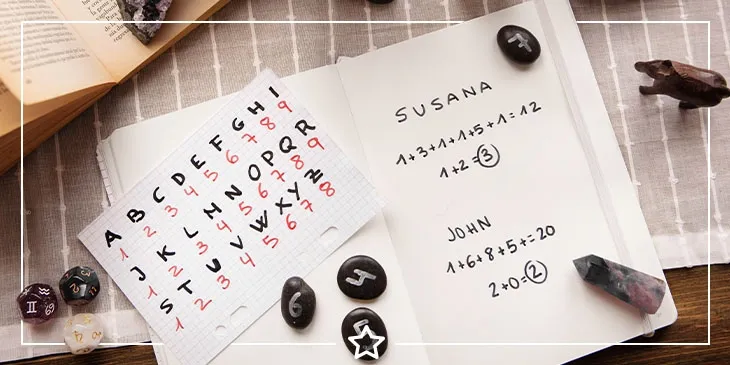 A B C D E F G H I
1 2 3 4 5 6 7 8 9
J K L M N O P Q R
1 2 3 4 5 6 7 8 9
S T U V W X Y Z
1 2 3 4 5 6 7 8
SUSANA
1+3+1+1+5+1=12
1+2=3
JOHN
1+6+8+5+=20
2+0=2
7
6
4
5